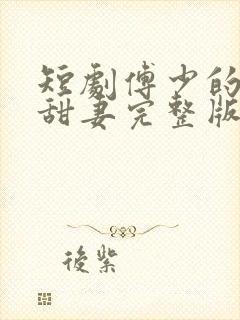 短劇傅少的
甜妻完整版
後紫